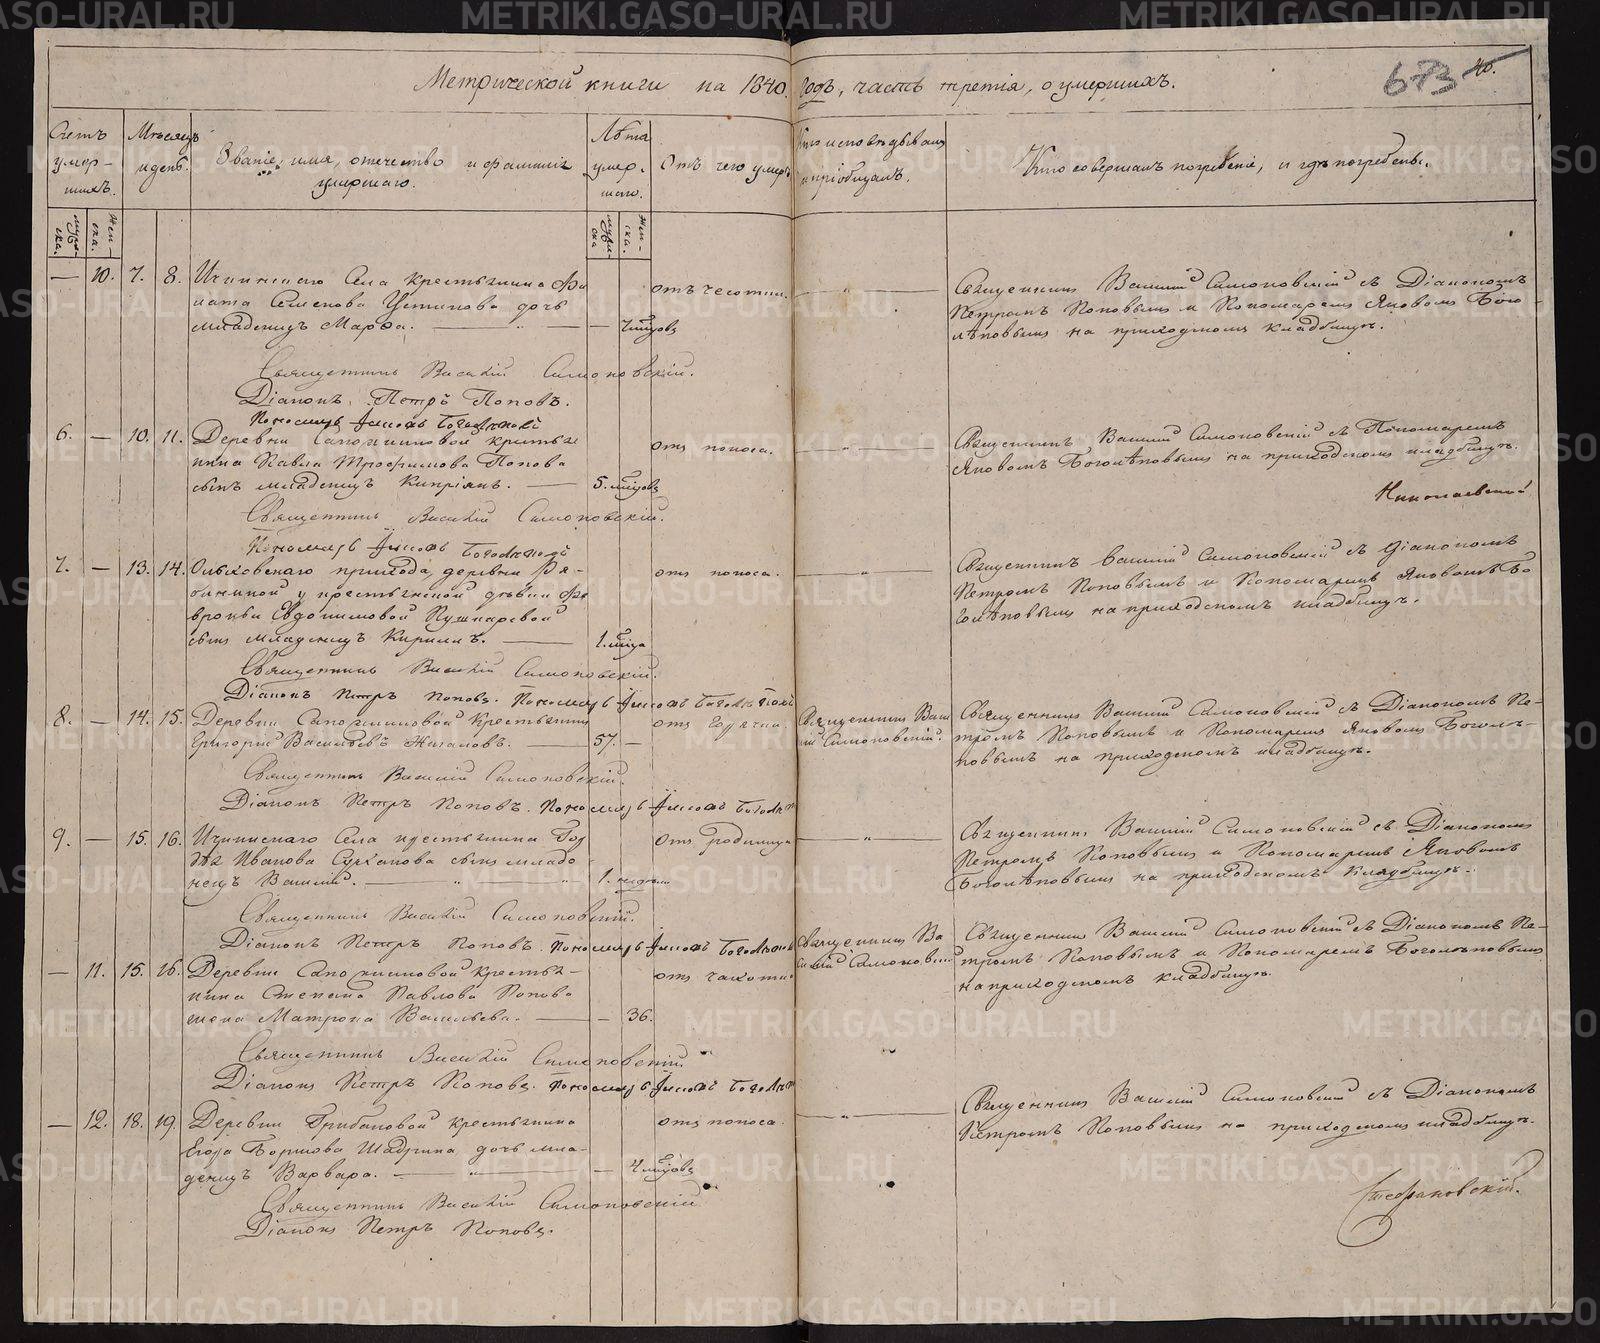 Метрической книги на 1840. Годъ, часть третія, о умершихъ.
673 46.
Счетъ умер-шихъ.
Мѣсяцъ и день.
Званіе, имя, отечество и фамилія умершаго.
Лѣта умер-шаго.
Отъ чего умеръ
Кто исповѣдывалъ и пріобщалъ.
Кто совершалъ погребеніе, и гдѣ погребены.
мужеска. женска.
мужеска женска.
— 10. 7. 8. Ичкинскаго Села крестьянина Фи
лата Семенова Устинова дочь
младенецъ Марѳа. — — 7 мѣсяцовъ
Священникъ Василій Симоновскій съ Діакономъ
Петромъ Поповымъ и Пономаремъ Яковомъ Бого
лѣповымъ на приходскомъ кладбищѣ.
Священникъ Василій Симоновскій.
Діаконъ Петръ Поповъ.
Пономарь Яковъ Боголѣповъ
6. — 10. 11. Деревни крестья
нина Павла Трофимова Попова
сынъ младенецъ Кипріянъ. — 5. мѣсяцовъ
отъ поноса.
Священникъ Василій Симоновскій съ Пономаремъ
Яковомъ Боголѣповымъ на приходскомъ кладбищѣ.
Николаевскій
Священникъ Василій Симоновскій.
Пономарь Яковъ Боголѣповъ
7. — 13. 14. прихода, деревни Ря-
бининой у крестьянской дѣвки Фе
вроньи Евдокимовой Пушкаревой
сынъ младенецъ Кириллъ. — 1. мѣсяца
отъ поноса.
Священникъ Василій Симоновскій съ Діакономъ
Петромъ Поповымъ и Пономаремъ Яковомъ Бо
голѣповымъ на приходскомъ кладбищѣ.
Священникъ Василій Симоновскій.
Діаконъ Петръ Поповъ. Пономарь Яковъ Боголѣповъ
8. — 14. 15. Деревни крестьянинъ
Григорій Васильевъ Жигаловъ. — 57. —
отъ горячки.
Священникъ Васи
лій Симоновскій.
Священникъ Василій Симоновскій съ Діакономъ Пе-
тромъ Поповымъ и Пономаремъ Яковомъ Боголѣ-
повымъ на приходскомъ кладбищѣ.
Священникъ Василій Симоновскій.
Діаконъ Петръ Поповъ. Пономарь Яковъ Боголѣп
9. — 15. 16. Ичкинскаго Села крестьянина
Иванова сынъ младе
нецъ Василій. — 1. недѣли
отъ родимца
Священникъ Василій Симоновскій съ Діакономъ
Петромъ Поповымъ и Пономаремъ Яковомъ
Боголѣповымъ на приходскомъ кладбищѣ.
Священникъ Василій Симоновскій.
Діаконъ Петръ Поповъ. Пономарь Яковъ Боголѣпов
— 11. 15. 16. Деревни крестья-
нина Степана Павлова Попова
жена Матрона Васильева. — — 36.
отъ чахотки
Священникъ Ва
силій Симоновскій
Священникъ Василій Симоновскій съ Діакономъ Пе-
тромъ Поповымъ и Пономаремъ Боголѣповымъ
на приходскомъ кладбищѣ.
Священникъ Василій Симоновскій
Діаконъ Петръ Поповъ. Пономарь Яковъ Боголѣп
— 12. 18. 19. Деревни Грибановой крестьянина
Егора Борисова Шадрина дочь мла-
денецъ Варвара. — — 4 мѣсяцовъ
отъ поноса
Священникъ Василій Симоновскій съ Діакономъ
Петромъ Поповымъ на приходскомъ кладбищѣ.
Стефановскій.
Священникъ Василій Симоновскій
Діаконъ Петръ Поповъ.
METRIKI.GASO-URAL.RU